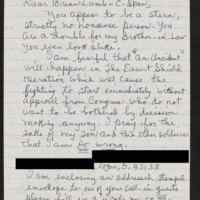 Dear Brian Lamb - C-Span,
You appear to be a stern,
strictly no nonsense person. You
are a double for my brother-in-law
You even look alike.
I am fearful that "an incident"
will happen in The Desert Shield
operation which will cause the
fighting to start immediately without
approval from Congress who do not
want to be bothered by decision
making anyway. I pray for the
safety of my Son and this other soldiers
that I am so wrong.
Logan, O. 43138
I am enclosing an addressed, stamped
envelope to one of your call-in guests